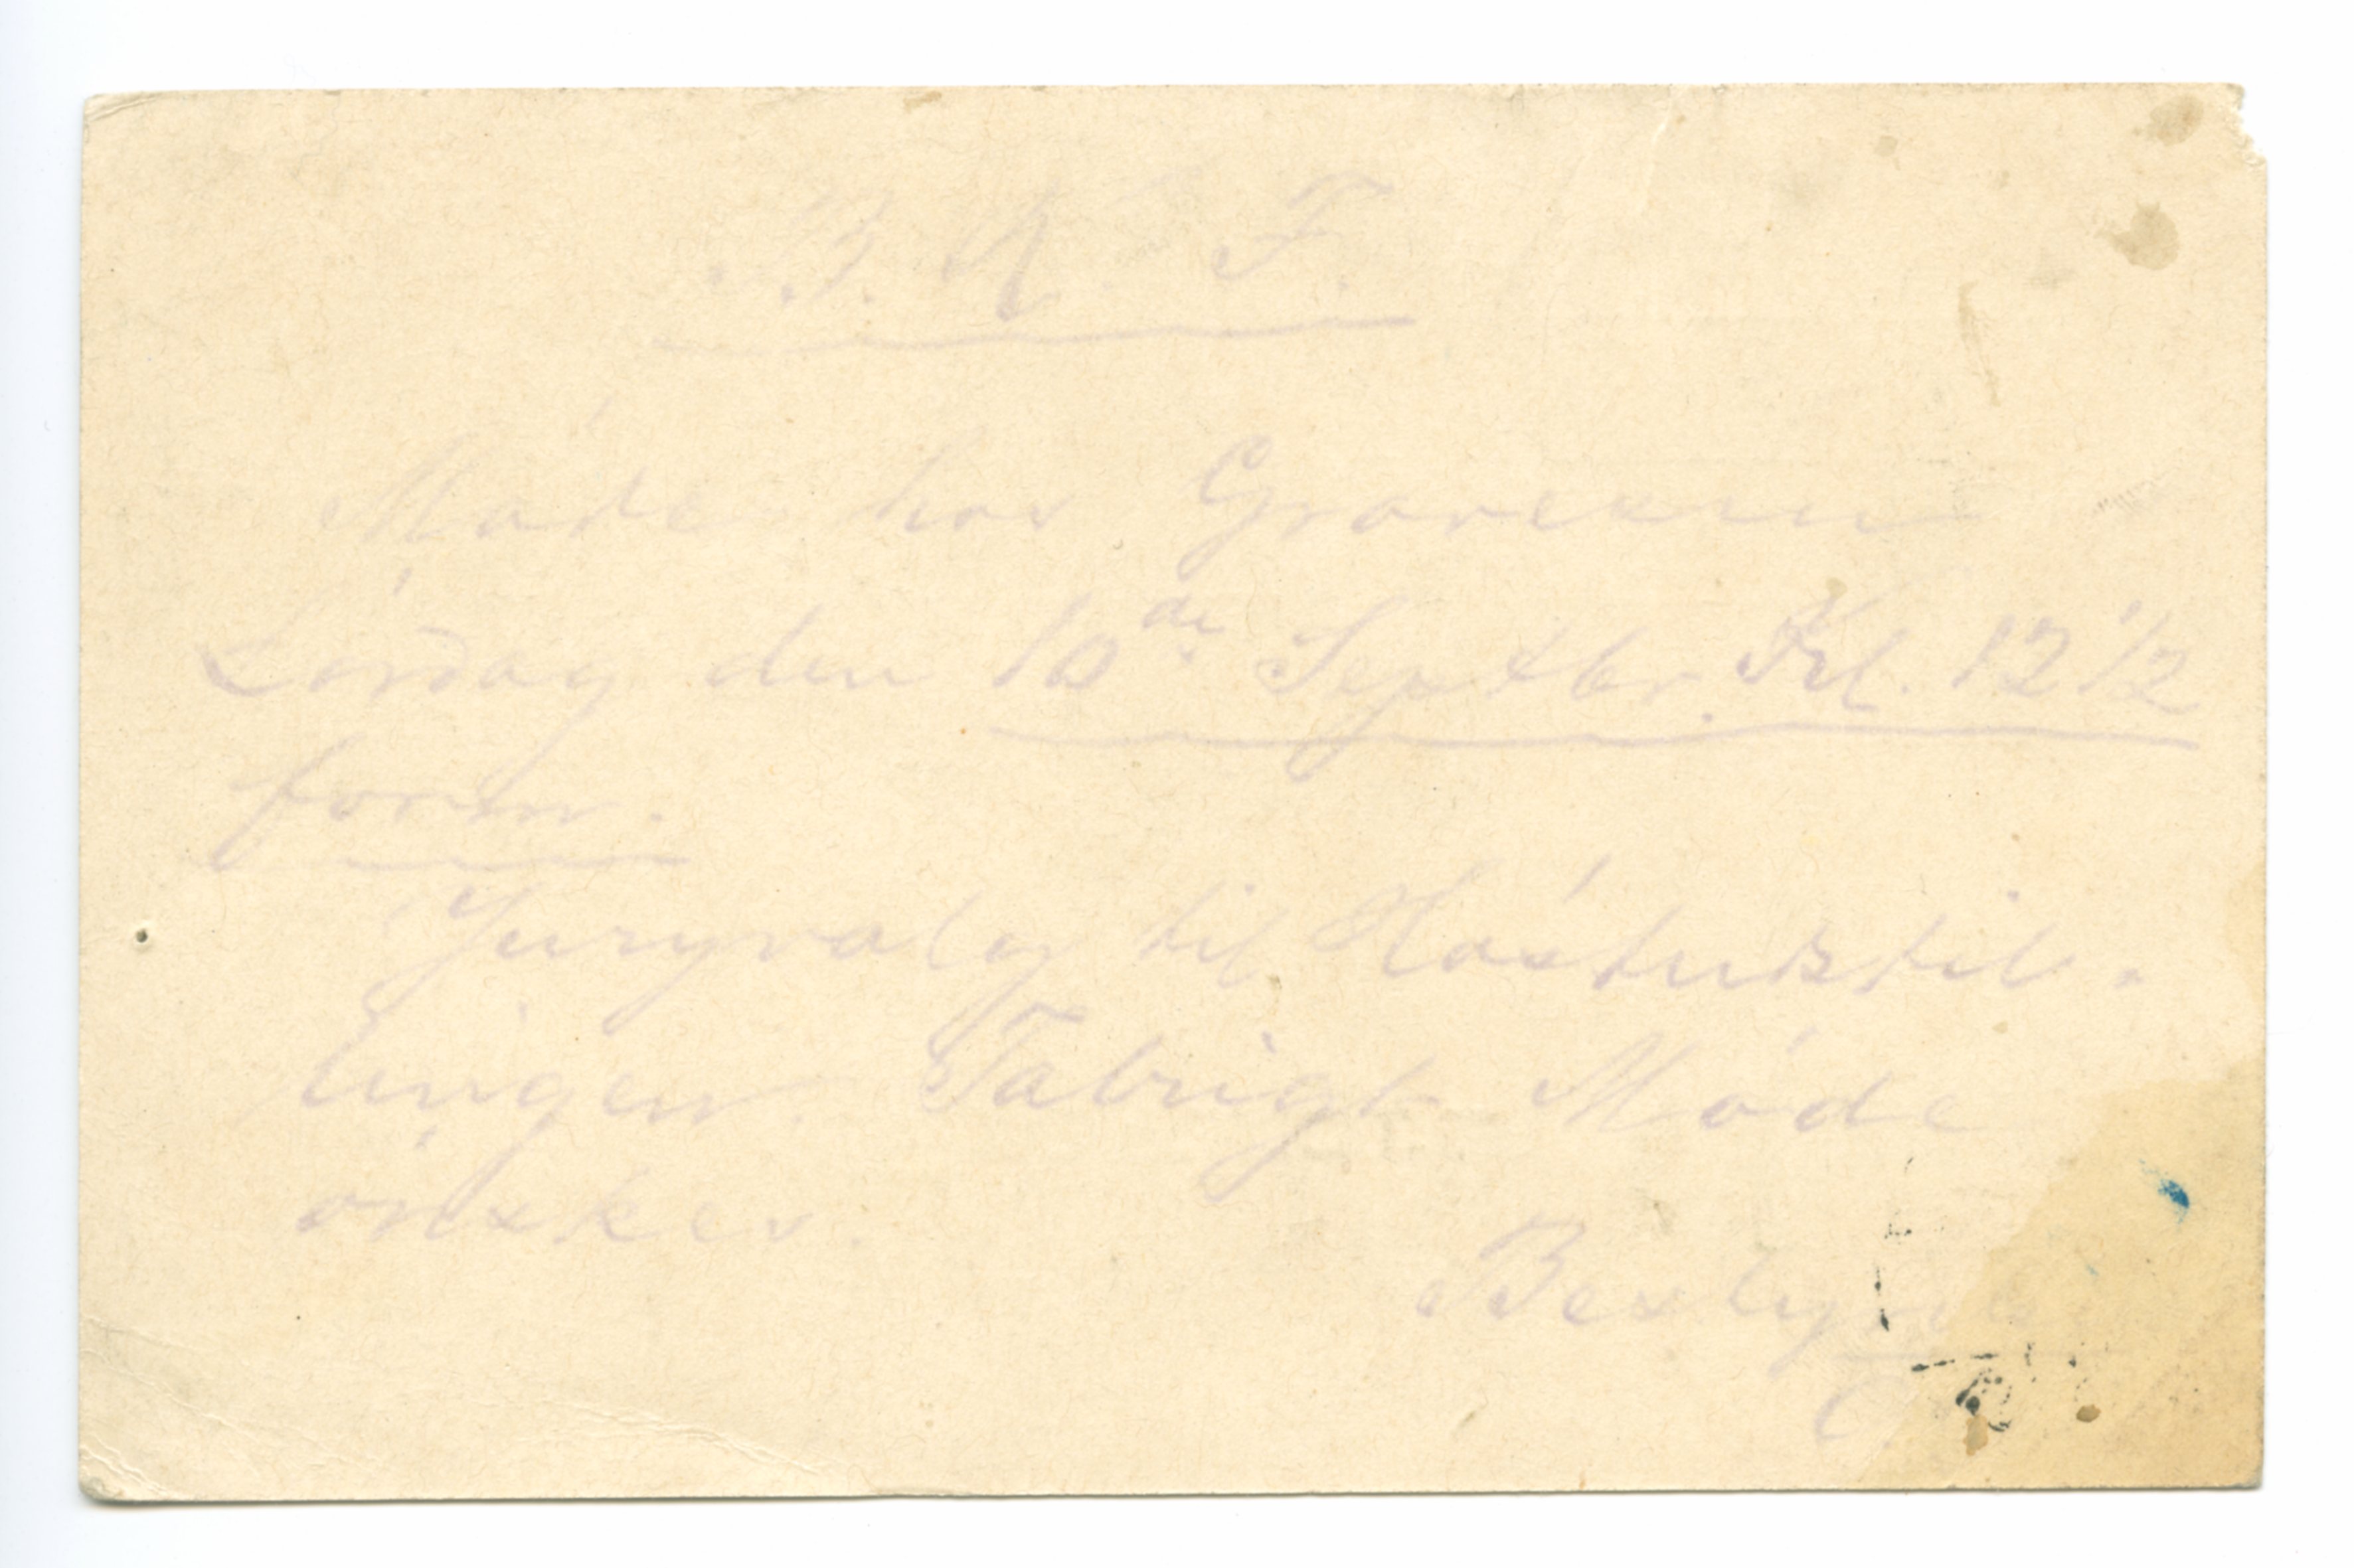 B. K. F.
Møde hos Gravesen
Lørdag den 10de Septbr. Kl. 12 1/2
form.
Juryvalg til Høstudstil-
lingen. Talrigt Møde
ønskes.